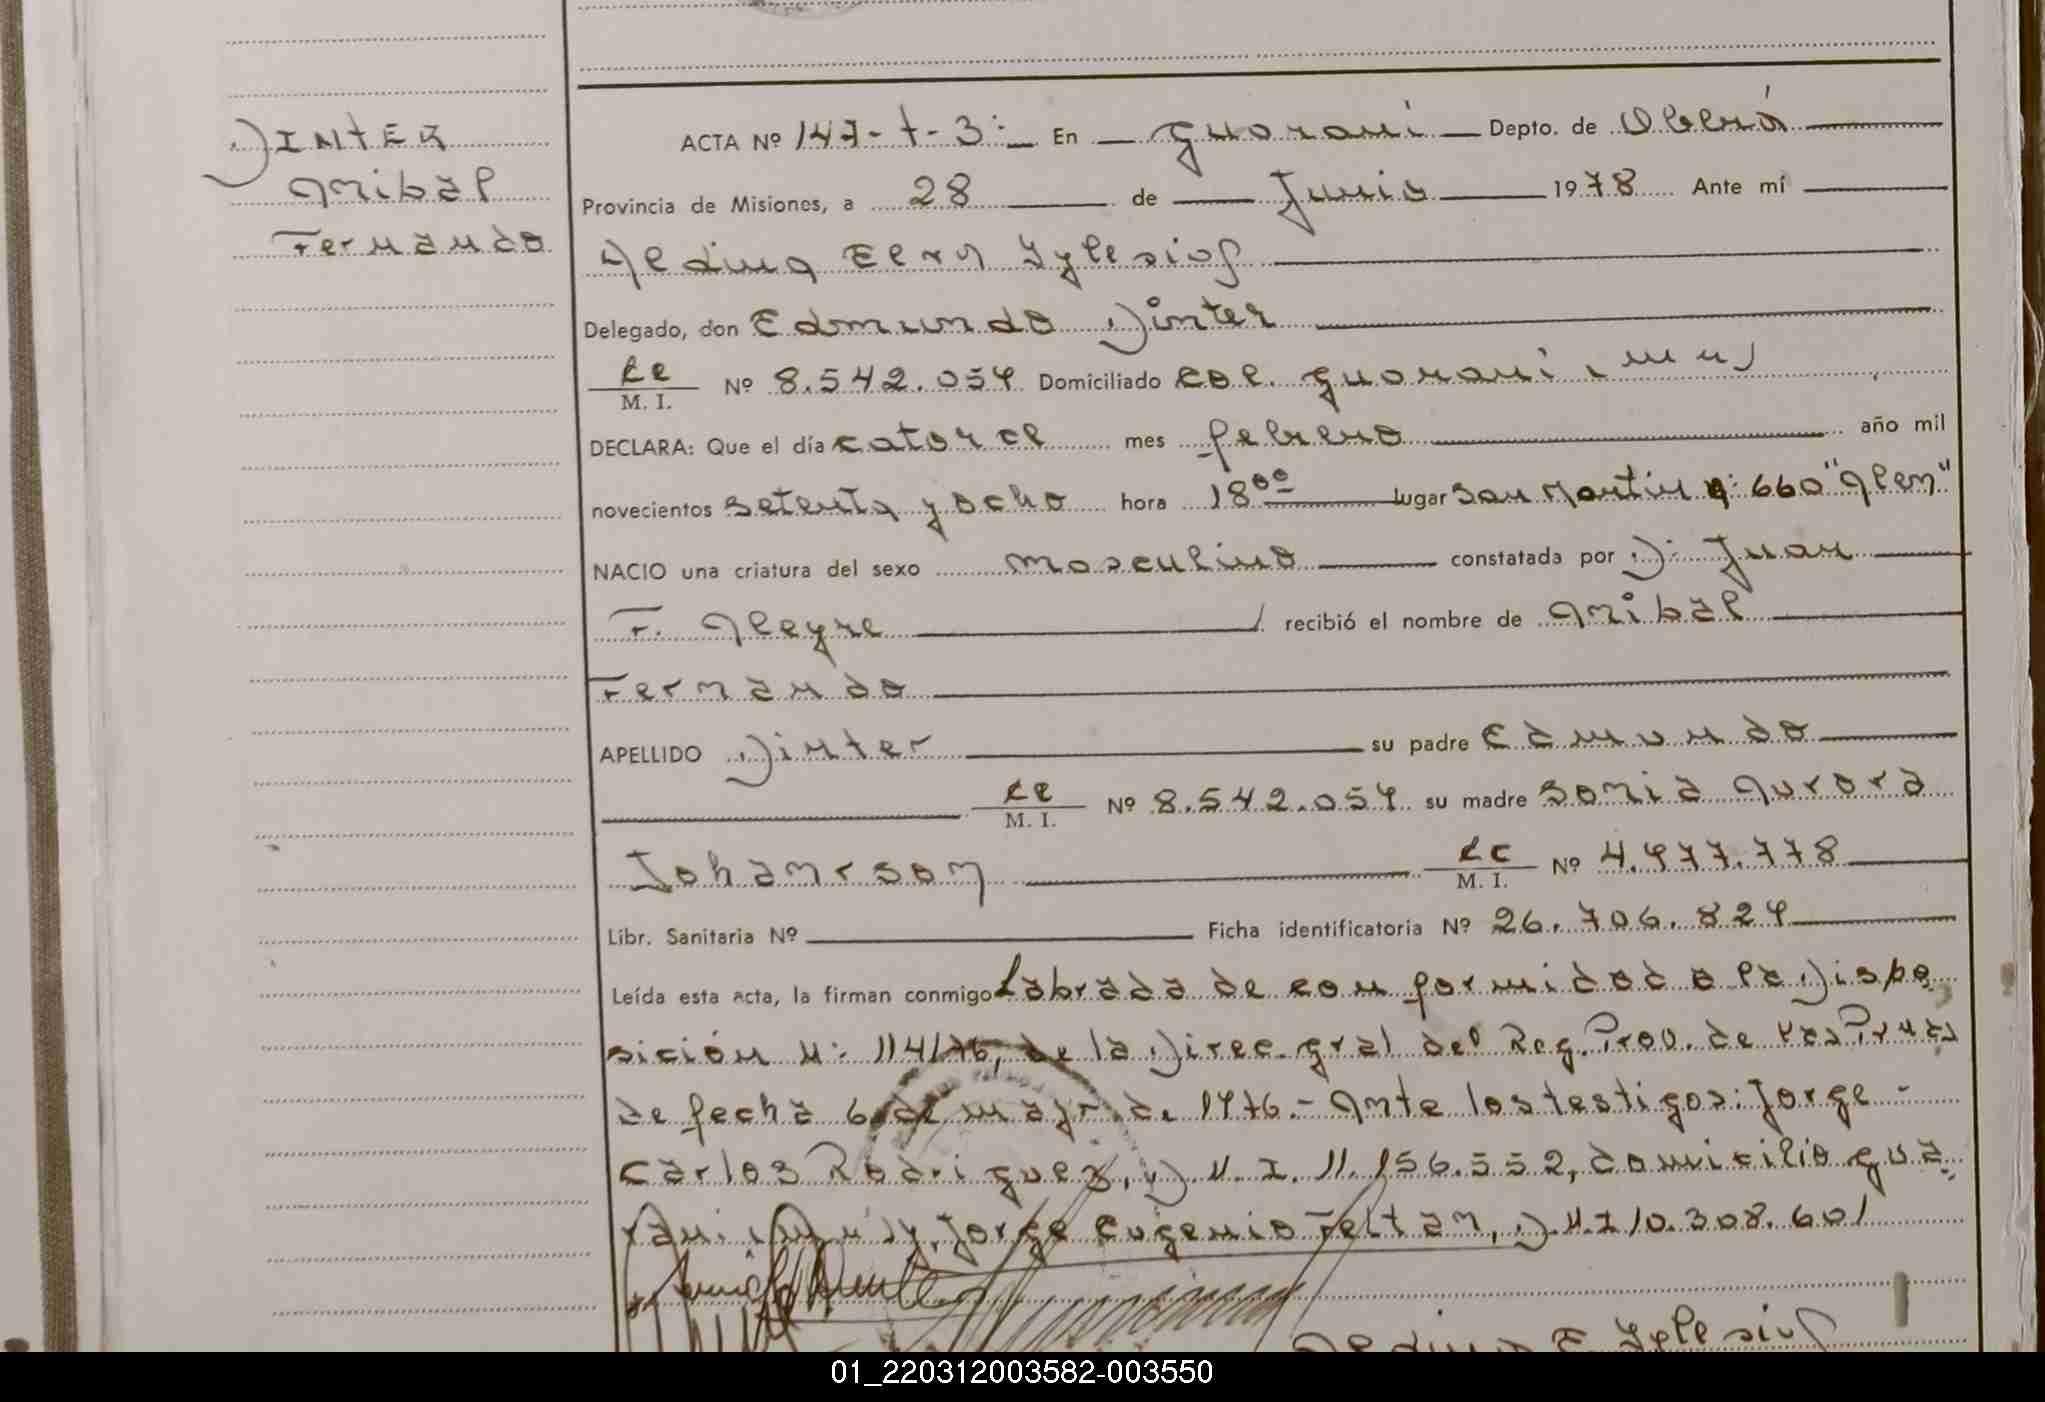 DINTER
Anibal
Fernando
ACTA Nº 147-t-3:- En Guarani Depto. de Oberá
Provincia de Misiones, a 28 de Junio 1978 Ante mí
Aldina Iglesias
Delegado, don Edmundo Dinter
M. I. Nº 8.542.054 Domiciliado col. guarani
DECLARA: Que el día catorce mes febrero año mil
novecientos setenta y ocho hora 18⁰⁰ lugar San Martin 660 "Alem"
NACIO una criatura del sexo masculino constatada por D. Juan
F. Alegre recibió el nombre de Anibal
Fernando
APELLIDO Dinter su padre Edmundo
M. I. Nº 8.542.054 su madre Sonia Aurora
Johansson
LC M. I. Nº 4.977.778
Libr. Sanitaria Nº Ficha identificatoria Nº 26.706.829
Leída esta acta, la firman conmigo Labrada de conformidad a la Dispo
sición N: 114/76, de la Direc. gral del Reg. Prov. de las Prnas
de fecha 6 de mayo de 1976.- Ante los testigos: Jorge -
Carlos Rodriguez, D.N.I. 11.156.552, domicilio gua
rani, Jorge Eugenio Feltan, D.N.I 10.308.601
E. Iglesias
01_220312003582-003550